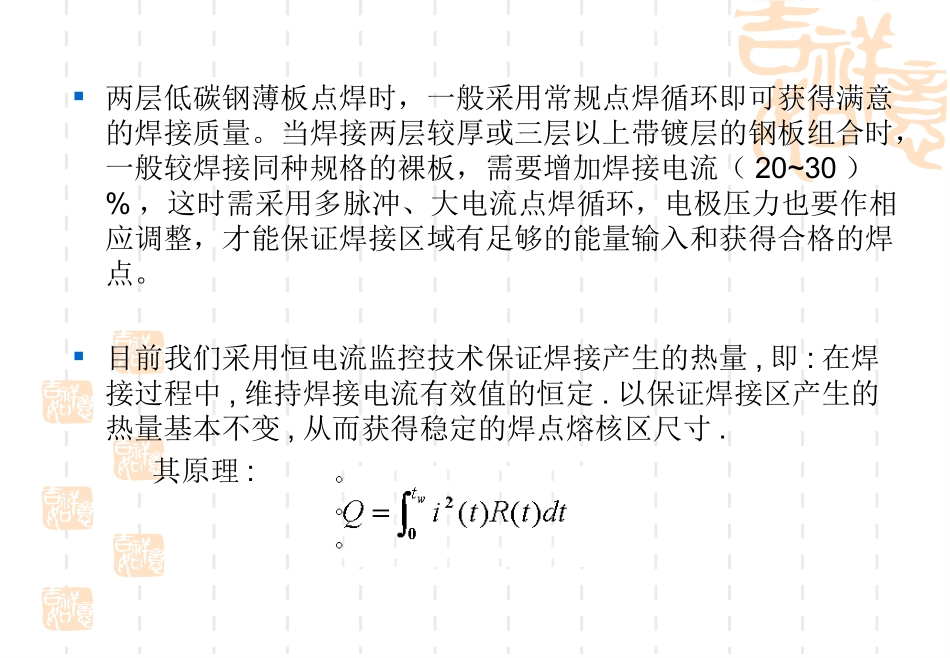 吉祥如意
▪ 两层低碳钢薄板点焊时，一般采用常规点焊循环即可获得满意
的焊接质量。当焊接两层较厚或三层以上带镀层的钢板组合时，
一般较焊接同种规格的裸板，需要增加焊接电流（ 20~30 ）
% ，这时需采用多脉冲、大电流点焊循环，电极压力也要作相
应调整，才能保证焊接区域有足够的能量输入和获得合格的焊
点。
▪ 目前我们采用恒电流监控技术保证焊接产生的热量 , 即 : 在焊
接过程中 , 维持焊接电流有效值的恒定 . 以保证焊接区产生的
热量基本不变 , 从而获得稳定的焊点熔核区尺寸 .
其原理 :
。
。Q = ∫₀^{t_w} i²(t)R(t)dt
。
吉祥如意
吉祥如意
吉祥如意
吉祥如意
吉祥如意
吉祥如意